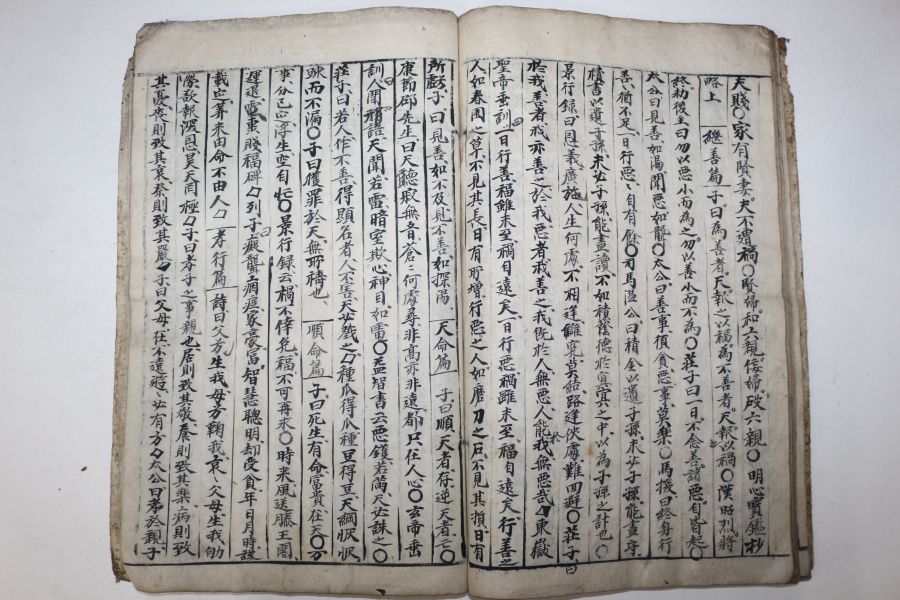 夫賤○家有賢妻夫不遭禍○賢婦和六親佞婦破六親○明心寶鑑抄
略上 繼善篇 子曰為善者天報之以福為不善者天報以禍○漢昭烈將
終勑後主曰勿以惡小而為之勿以善小而不為○莊子曰一日不念善諸惡自皆起○
太公曰見善如渴聞惡如聾○太公曰善事須貪惡事莫樂○馬援曰終身行
善猶不足一日行惡〻自有餘○司馬溫公曰積金以遺子孫未必子孫能盡守
積書以遺子孫未必子孫能盡讀不如積蔭德於冥冥之中以為子孫之計也○
景行録曰恩義廣施人生何處不相逢讐寃莫結路逢狹處難回避○莊子曰
於我善者我亦善之於我惡者我善之我旣於人無惡人能於我無惡哉○東嶽
聖帝垂訓一日行善福雖未至禍自遠矣一日行惡禍雖未至福自遠矣行善之
人如春園之草不見其長日有所增行惡之人如磨刀之石不見其損日有
所虧子曰見善如不及見不善如探湯 天命篇 子曰順天者存逆天者亡○
康節邵先生曰天聽寂無音蒼〻何處尋非高亦非遠都只在人心○玄帝垂
訓人間私語天聞若雷暗室欺心神目如雷○益智書云惡鑵若滿天必誅之○
莊子曰若人作不善得顯名者人不害天必戮之〇種瓜得瓜種豆得豆天網恢恢
踈而不漏○子曰獲罪於天無所禱也 順命篇 子曰死生有命富貴在天○万
事分已定浮生空自忙○景行録云禍不倖免福不可再求○時來風送滕王閣
運退雷轟薦福碑〇列子癡聾痼瘂家豪富智慧聰明却受貧年月日時該
載定算來由命不由人〇 孝行篇 詩曰父兮生我母兮鞠我哀〻父母生我劬
勞欲報深恩昊天罔極〇子曰孝子之事親也居則致其敬養則致其樂病則致
其憂喪則致其哀祭則致其嚴〇子曰父母在不遠遊〻必有方〇太公曰孝於親子